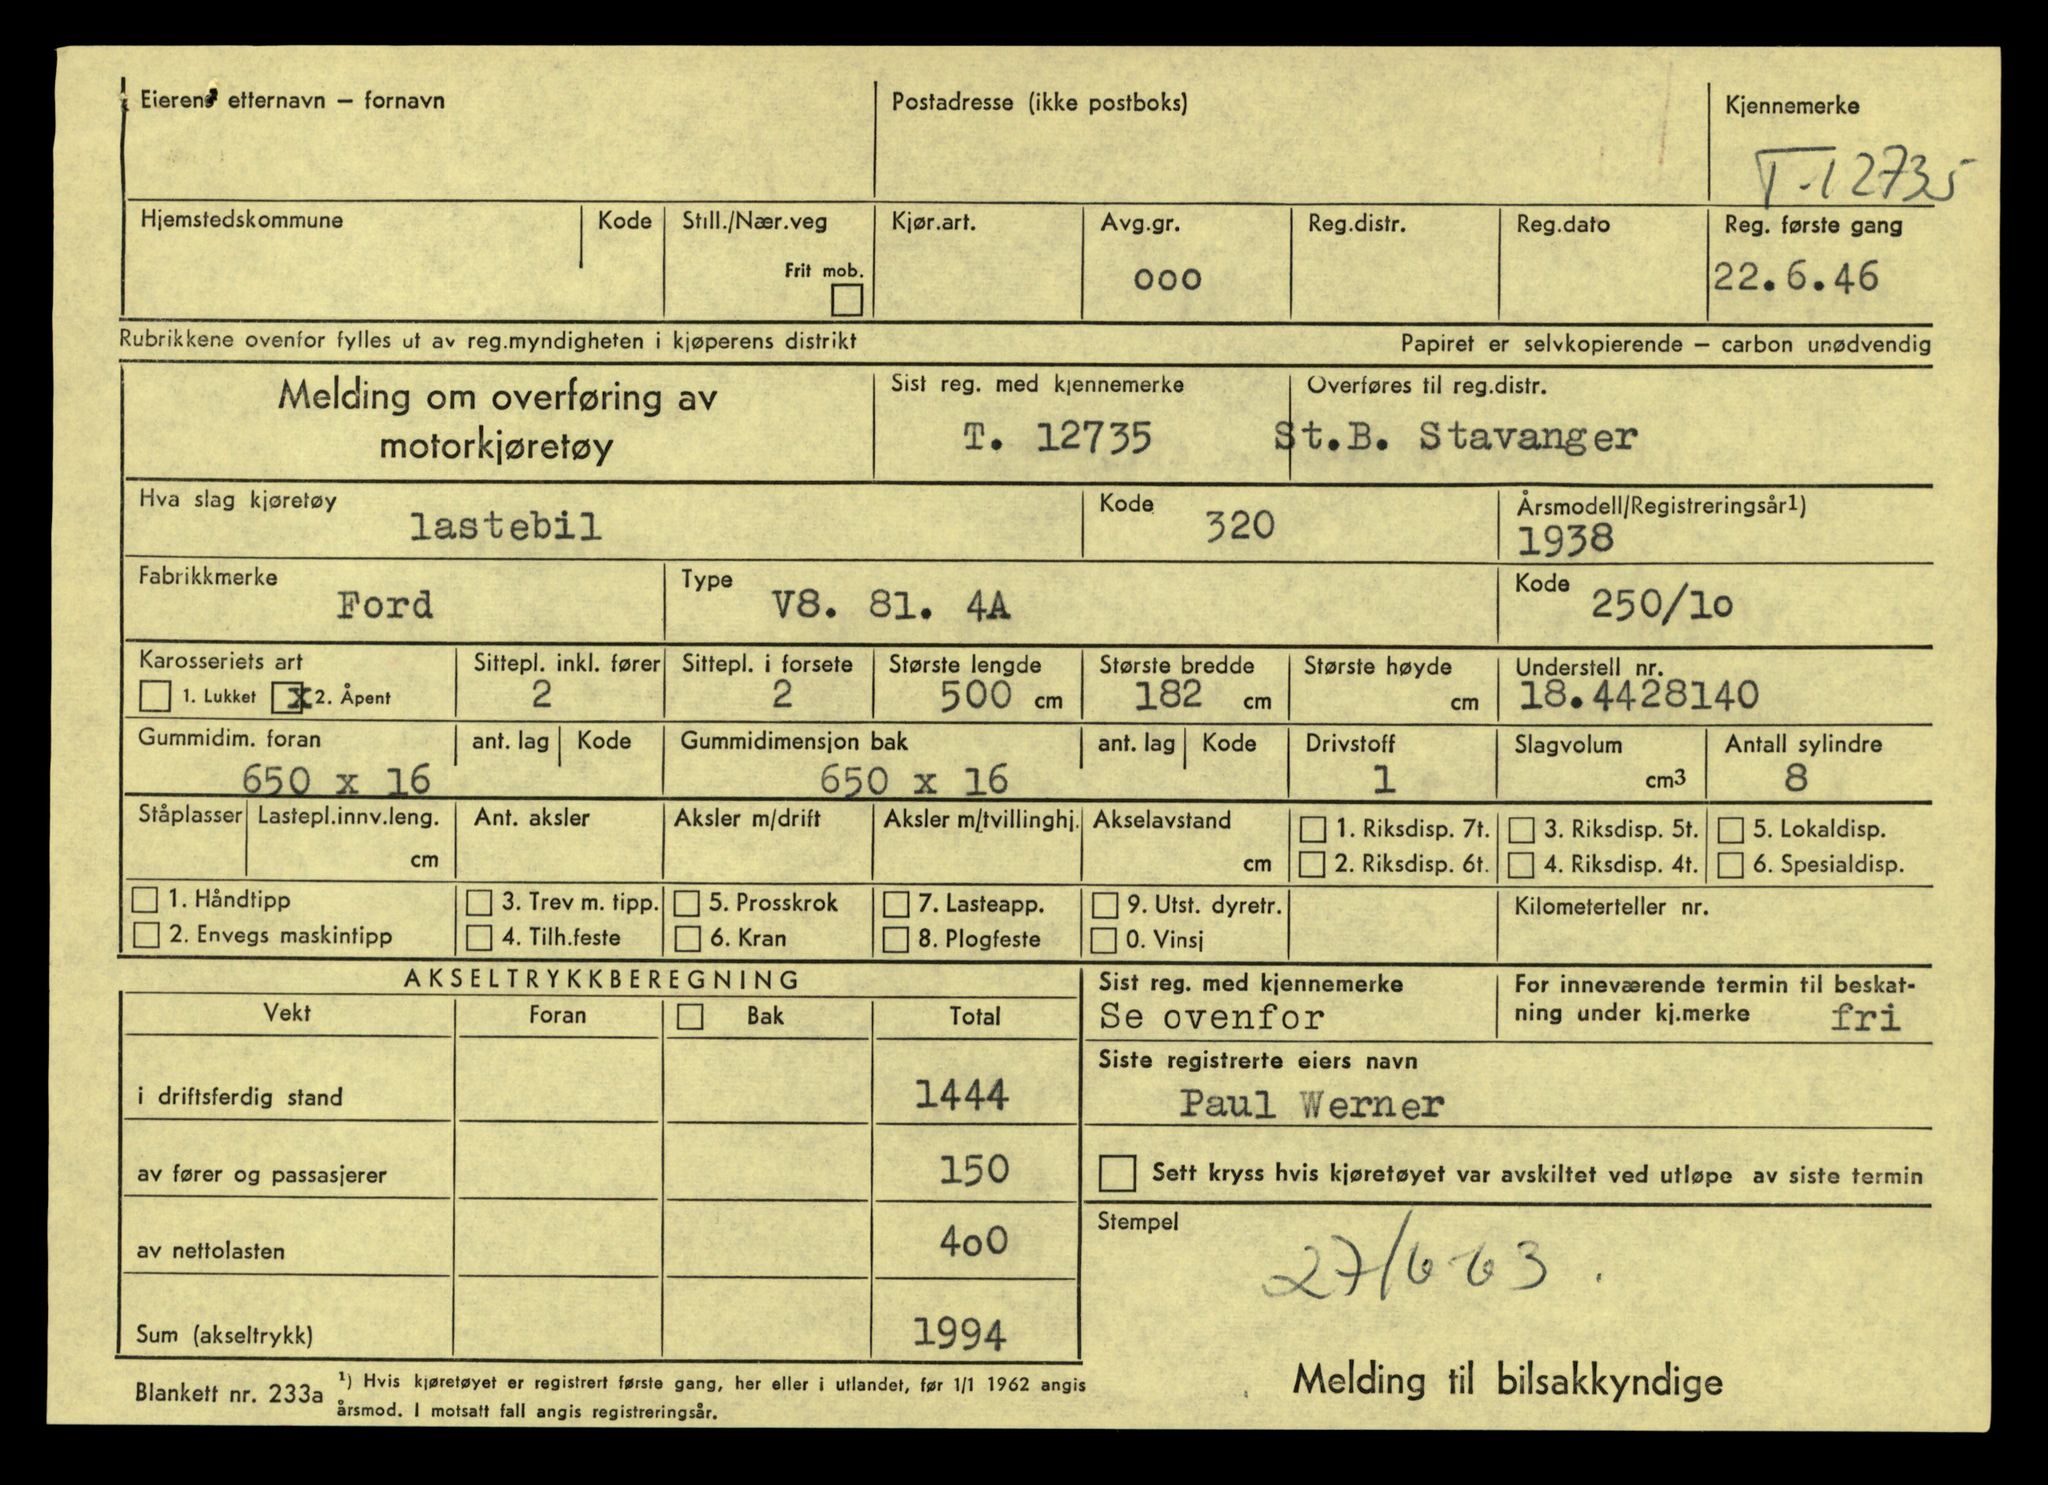 Eierens etternavn – fornavn
Postadresse (ikke postboks)
Kjennemerke
T-12735
Hjemstedskommune
Kode
Still./Nær.veg
Frit mob.
Kjør.art.
Avg.gr.
ooo
Reg.distr.
Reg.dato
Reg. første gang
22.6.46
Rubrikkene ovenfor fylles ut av reg.myndigheten i kjøperens distrikt
Papiret er selvkopierende – carbon unødvendig
Melding om overføring av
motorkjøretøy
Sist reg. med kjennemerke
T. 12735
Overføres til reg.distr.
St.B. Stavanger
Hva slag kjøretøy
lastebil
Kode
320
Årsmodell/Registreringsår1)
1938
Fabrikkmerke
Ford
Type
V8. 81. 4A
Kode
250/1o
Karosseriets art
1. Lukket x 2. Åpent
Sittepl. inkl. fører
2
Sittepl. i forsete
2
Største lengde
500 cm
Største bredde
182 cm
Største høyde
cm
Understell nr.
18.4428140
Gummidim. foran
650 x 16
ant. lag
Kode
Gummidimensjon bak
650 x 16
ant. lag
Kode
Drivstoff
1
Slagvolum
cm3
Antall sylindre
8
Ståplasser
Lastepl.innv.leng.
cm
Ant. aksler
Aksler m/drift
Aksler m/tvillinghj.
Akselavstand
cm
1. Riksdisp. 7t.
2. Riksdisp. 6t.
3. Riksdisp. 5t.
4. Riksdisp. 4t.
5. Lokaldisp.
6. Spesialdisp.
1. Håndtipp
2. Envegs maskintipp
3. Trev m. tipp.
4. Tilh.feste
5. Prosskrok
6. Kran
7. Lasteapp.
8. Plogfeste
9. Utst. dyretr.
0. Vinsj
Kilometerteller nr.
AKSELTRYKKBEREGNING
Vekt
Foran
Bak
Total
i driftsferdig stand
1444
av fører og passasjerer
150
av nettolasten
4o0
Sum (akseltrykk)
1994
Sist reg. med kjennemerke
Se ovenfor
For inneværende termin til beskat-
ning under kj.merke fri
Siste registrerte eiers navn
Paul Werner
Sett kryss hvis kjøretøyet var avskiltet ved utløpe av siste termin
Stempel
27/6-63.
Blankett nr. 233a
1) Hvis kjøretøyet er registrert første gang, her eller i utlandet, før 1/1 1962 angis
årsmod. I motsatt fall angis registreringsår.
Melding til bilsakkyndige